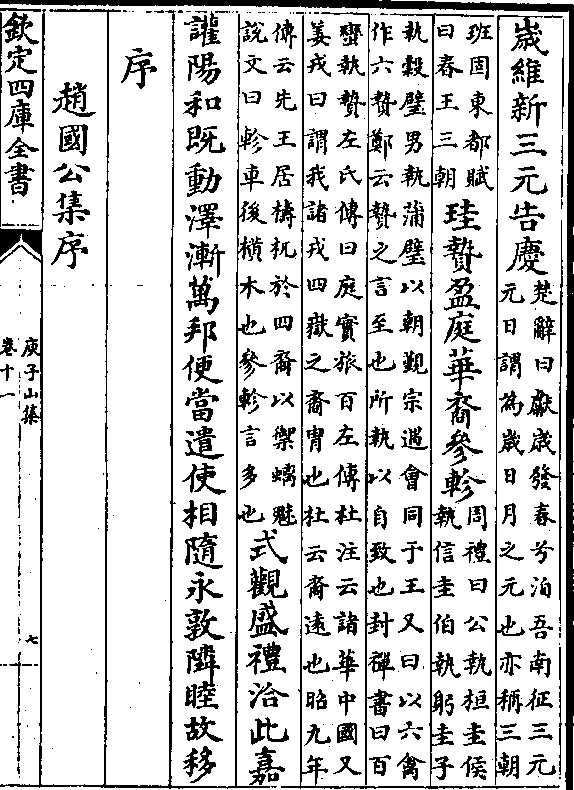 歲維新三元告慶楚辭曰獻歲發春兮汨吾南征三元元日謂為歲日月之元也亦稱三朝
班固東都賦曰春王三朝珪贄盈庭華裔參軫周禮曰公執桓圭侯執信圭伯執躬圭子
執穀璧男執蒲璧以朝覲宗遇會同于王又曰以六禽
作六贄鄭云贄之言至也所執以自致也封禪書曰百
蠻執贄左氏傳曰庭實旅百左傳杜注云諸華中國又
姜戎曰謂我諸戎四嶽之裔胄也杜云裔遠也昭九年
傳云先王居檮杌於四裔以禦螭魅說文曰軫車後橫木也參軫言多也式觀盛禮洽此嘉
讙陽和既動澤漸萬邦便當遣使相隨永敦隣睦故移
序
趙國公集序
欽定四庫全書
庾子山集
卷十一
七